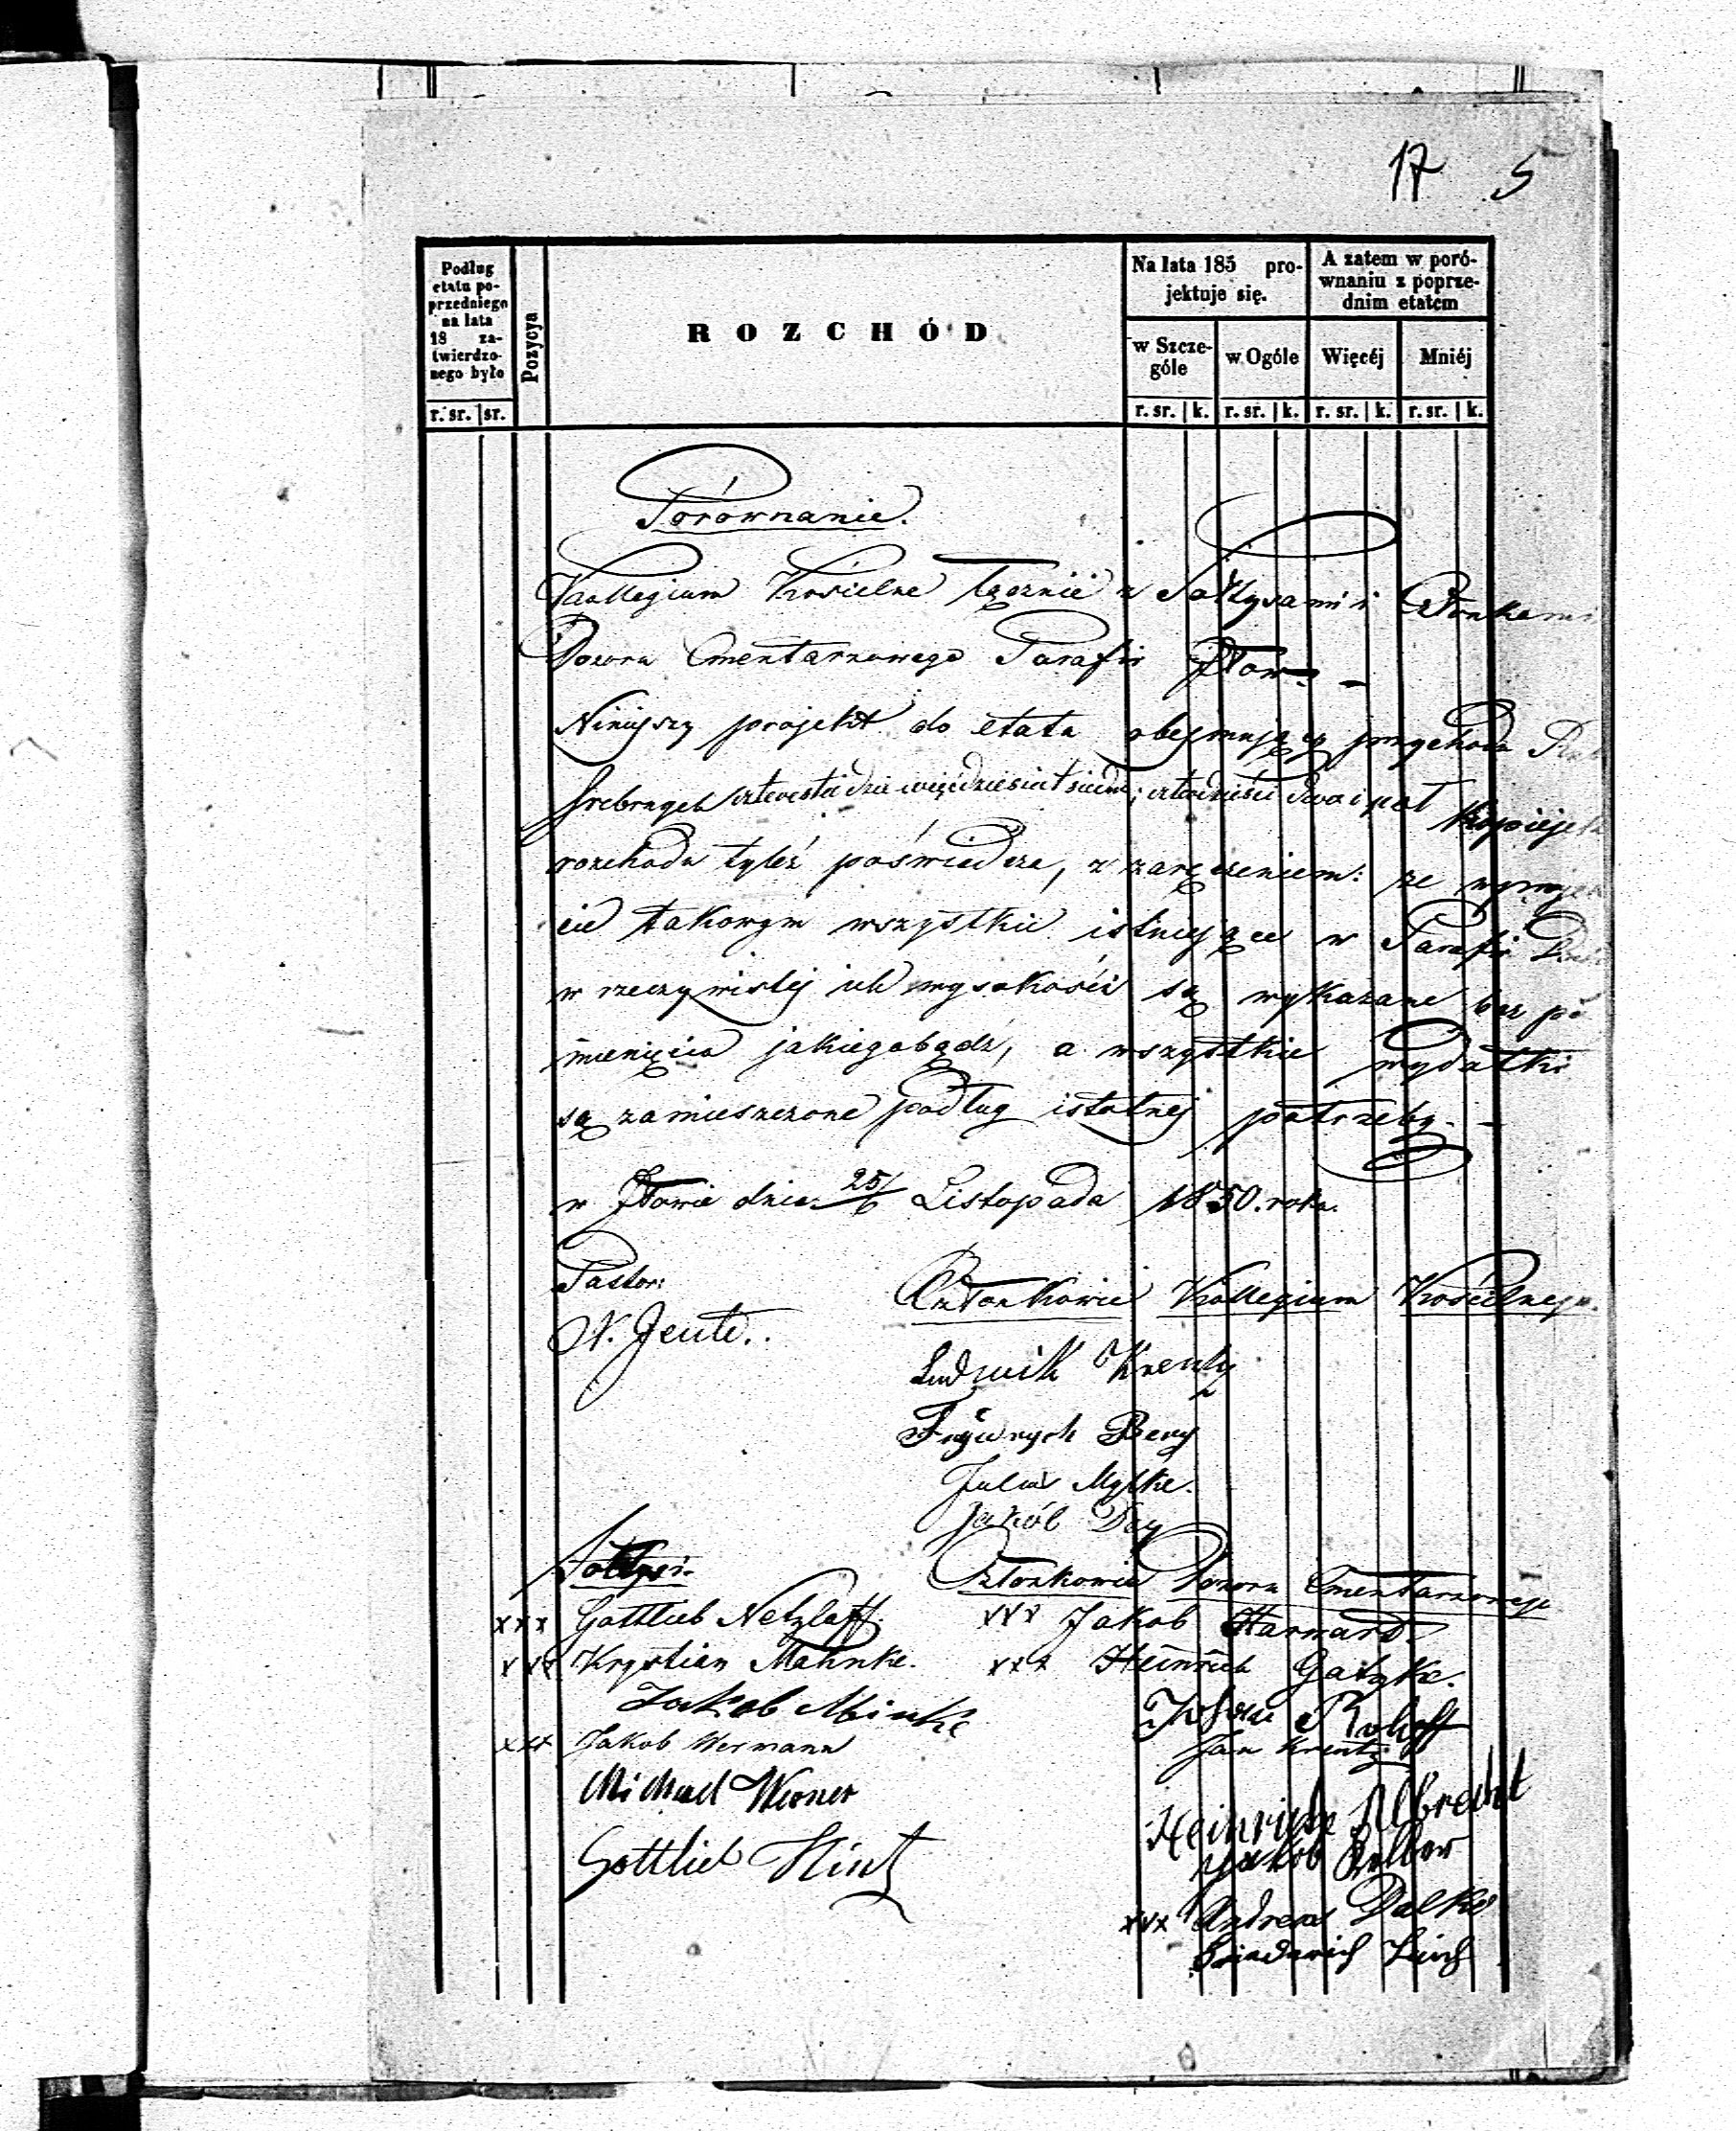 17 5
Podług
etatu po-
przedniego
na lata
18 za-
twierdzo-
nego było
r. sr. sr.
Pozycya
ROZCHÓD
Na lata 185 pro-
jektuje się.
w Szcze-
góle
w Ogóle
r. sr. k. r. sr. k.
A zatem w poró-
wnaniu z poprze-
dnim etatem
Więcéj Mniéj
r. sr. k. r. sr. k.
Porównanie.
Kollegium Kościelne łącznie z Sołtysami i Członkami
Dozoru Cmentarzowego Parafii Iłow:
Niniejszy projekt do etatu obejmujący przychodu
srebrnych czterysta dziewięćdziesiąt siedm; czterdzieści dwa i pół kopiejek
rozchodu tyleż poświadcza, z zaręczeniem: że
cie takowym wszystkie istniejące w Parafii
w rzeczywistej ich wysokości są wykazane bez po
minięcia jakiegobądź, a wszystkie wydatki
są zamieszczone podług istotnej potrzeby. -
w Iłowie dnia 25/6 Listopada 1850. roku.
Pastor:
Członkowie Kollegium Kościelnego.
Ludwik Krentz
Berg
Julius Mylke.
Jakób Day
Sołtysi.
xxx Gottlieb Netzlaff.
xxx Krystian Mahnke.
Jakob Minke
xxx Jakob Wermann
Michael Werner
Gottlieb Hintz
Członkowie Dozoru Cmentarzowego
xxx Jakob Harnard.
xxx Heinrich Gatzke.
Roloff
Jan Krentz
Heinrich Albrecht
Jakob
xxx Andreas Dalke